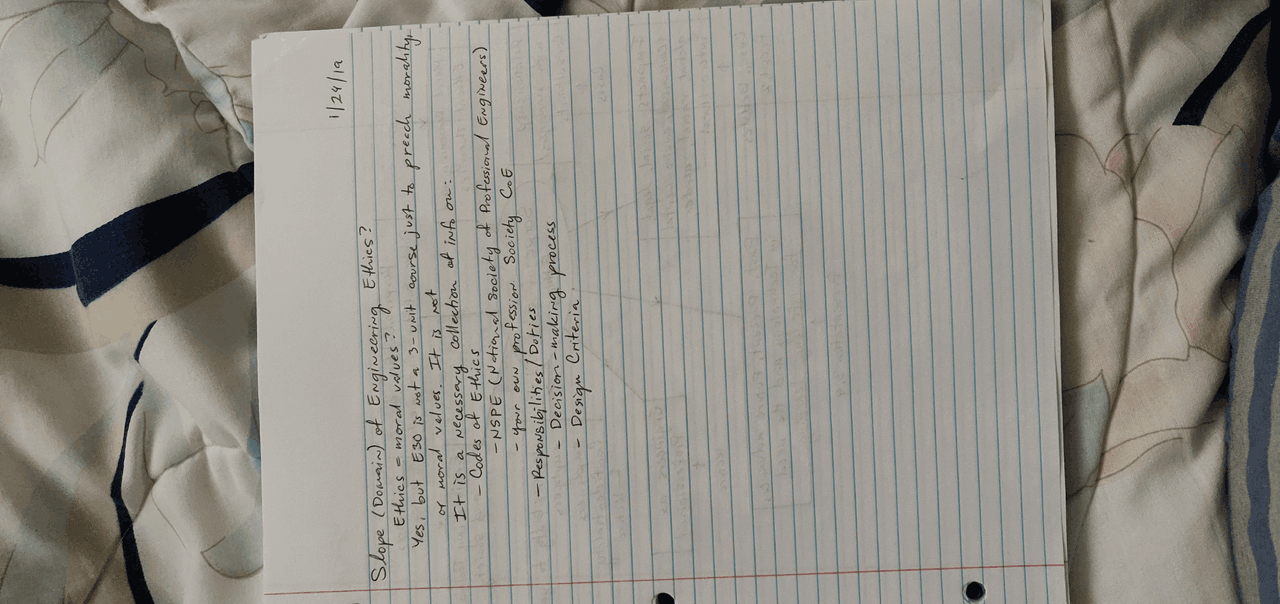 1/24/19
Slope (Domain) of Engineering Ethics?
Ethics = moral values?
Yes, but E30 is not a 3-unit course just to preach morality
or moral values. It is not
It is a necessary collection of info on:
- Codes of Ethics
- NSPE (National Society of Professional Engineers)
- your own profession Society CoE
- Responsibilities/Duties
- Decision-making process
- Design Criteria